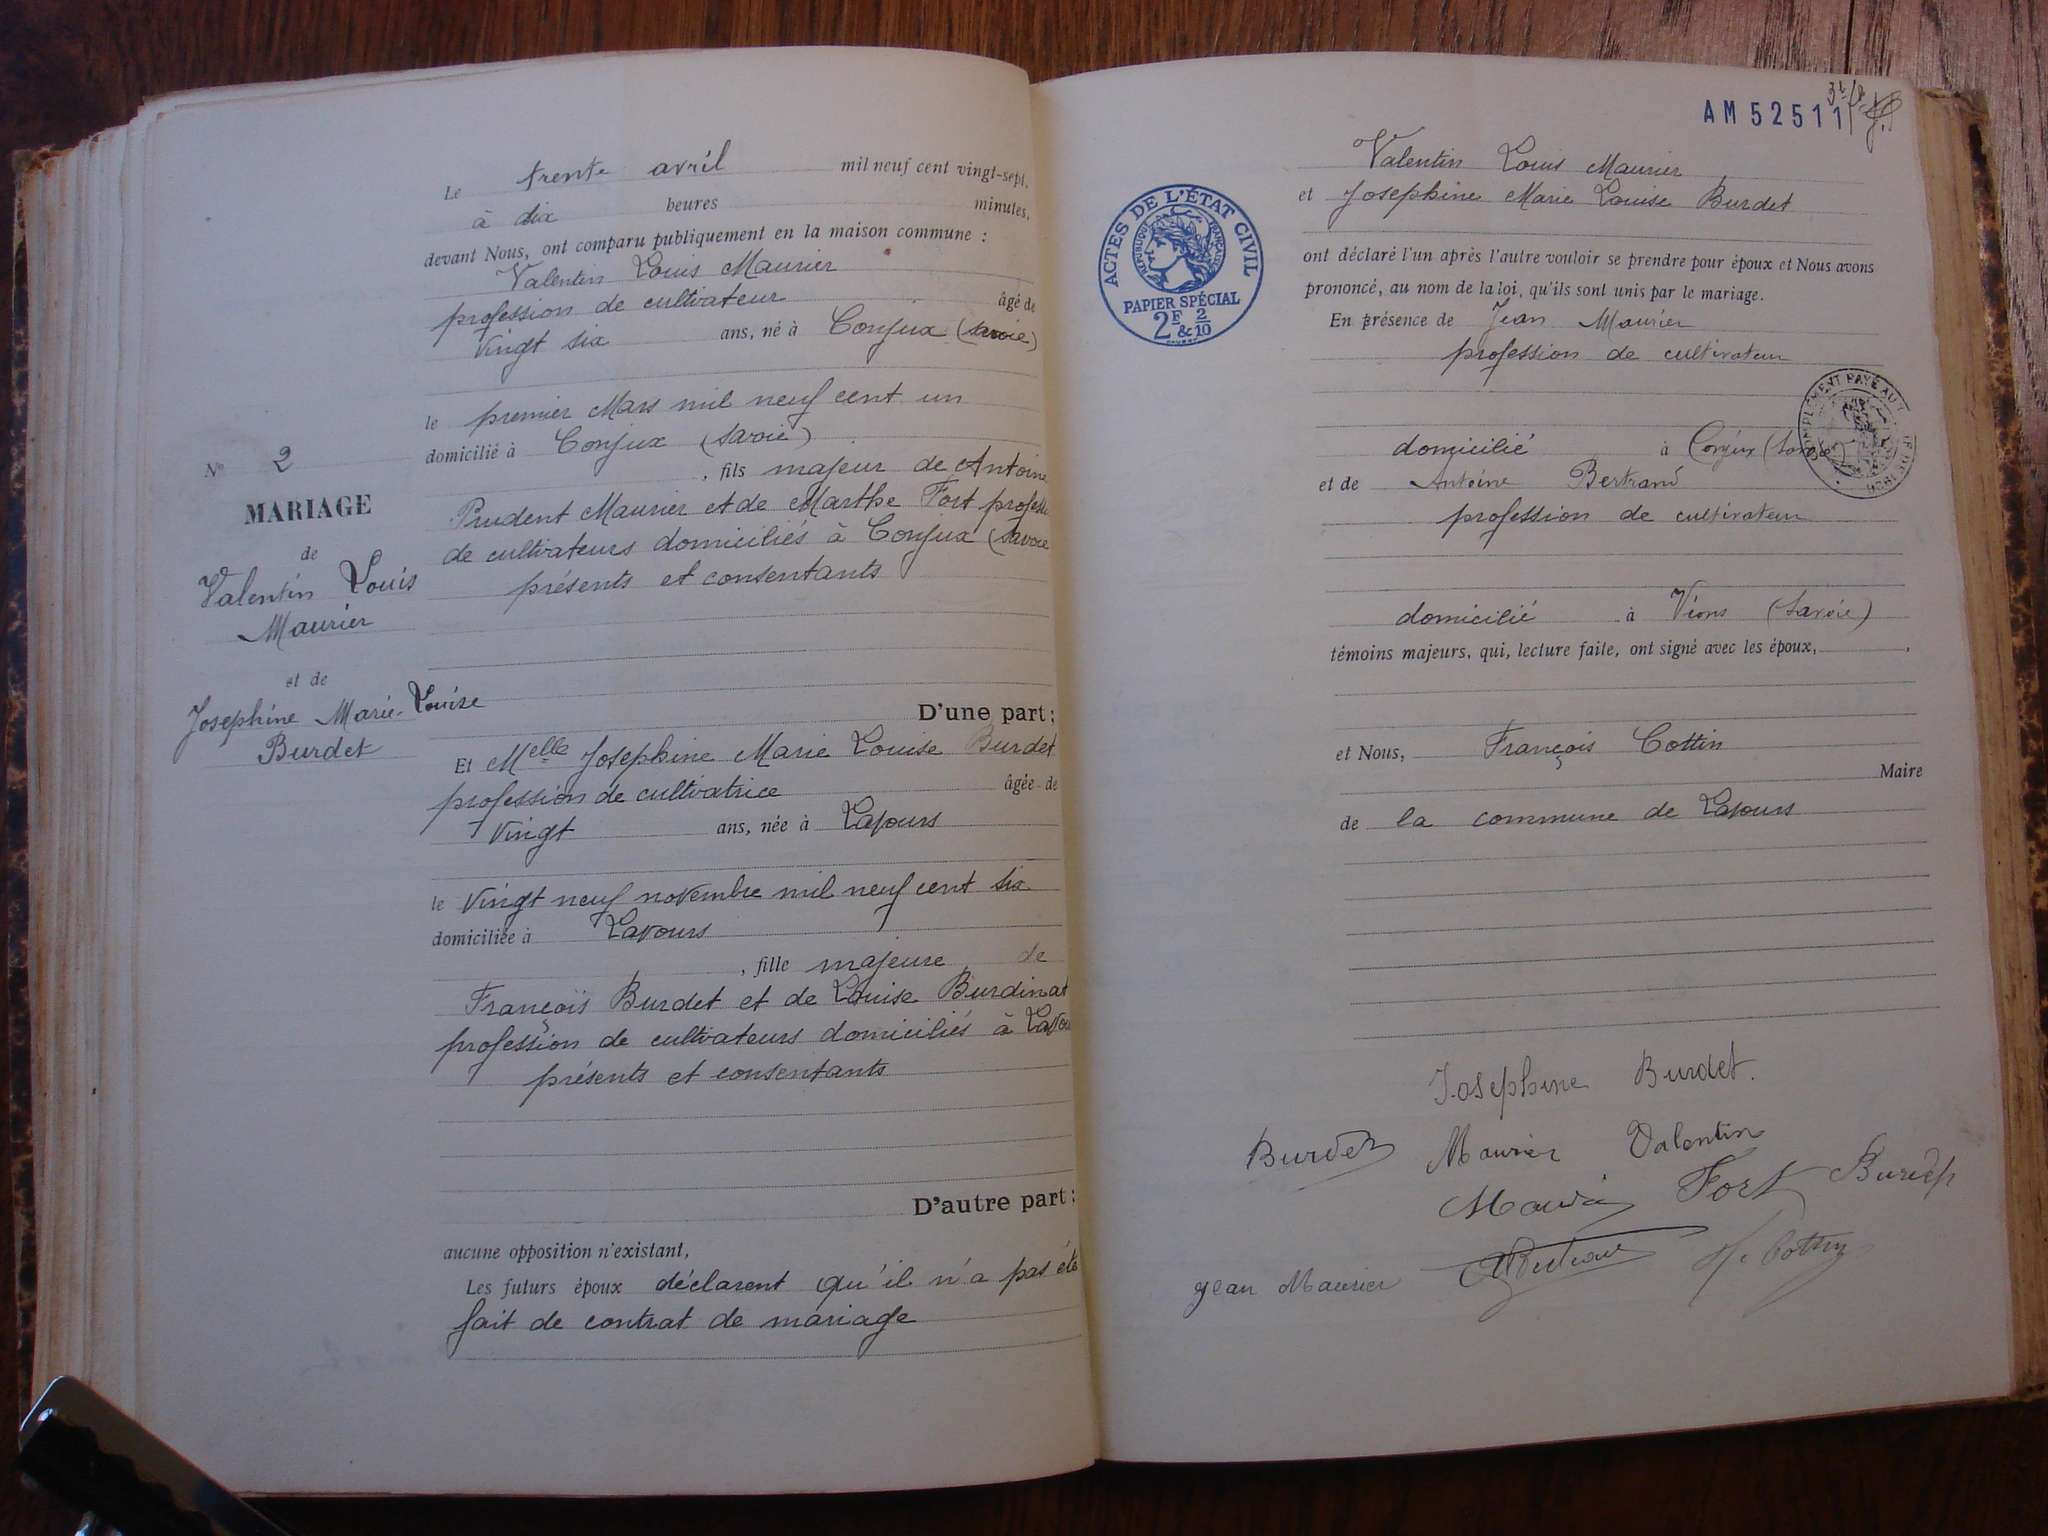 Le trente avril mil neuf cent vingt-sept,
à dix heures minutes,
devant Nous, ont comparu publiquement en la maison commune :
Valentin Louis Maurier
profession de cultivateur âgé de
vingt six ans, né à Conjux (Savoie)
le premier Mars mil neuf cent un
domicilié à Conjux (Savoie)
, fils majeur de Antoine
Prudent Maurier et de Marthe Fort profess
de cultivateurs domiciliés à Conjux (Savoie
présents et consentants
No 2
MARIAGE
de
Valentin Louis
Maurier
et de
Josephine Marie-Louise
Burdet
D'une part ;
Et Melle Josephine Marie Louise Burdet
profession de cultivatrice âgée de
Vingt ans, née à Lavours
le Vingt neuf novembre mil neuf cent six
domiciliée à Lavours
, fille majeure de
François Burdet et de Louise Burdinat
profession de cultivateurs domiciliés à Lavou
présents et consentants
D'autre part ;
aucune opposition n'existant,
Les futurs époux déclarent qu'il n'a pas été
fait de contrat de mariage
AM 52511
Valentin Louis Maurier
et Josephine Marie Louise Burdet
ACTES DE L'ÉTAT CIVIL
RÉPUBLIQUE FRANÇAISE
PAPIER SPÉCIAL
2F & 2/10
ont déclaré l'un après l'autre vouloir se prendre pour époux et Nous avons
prononcé, au nom de la loi, qu'ils sont unis par le mariage.
En présence de Jean Maurier
profession de cultivateur
domicilié à Conjux (Savoie)
et de Antoine Bertrand
profession de cultivateur
domicilié à Vions (Savoie)
témoins majeurs, qui, lecture faite, ont signé avec les époux, ,
et Nous, François Cottin
Maire
de la commune de Lavours
Josephine Burdet.
Burdet Maurier Valentin
Maurier Fort Burdet
Jean Maurier Cottin